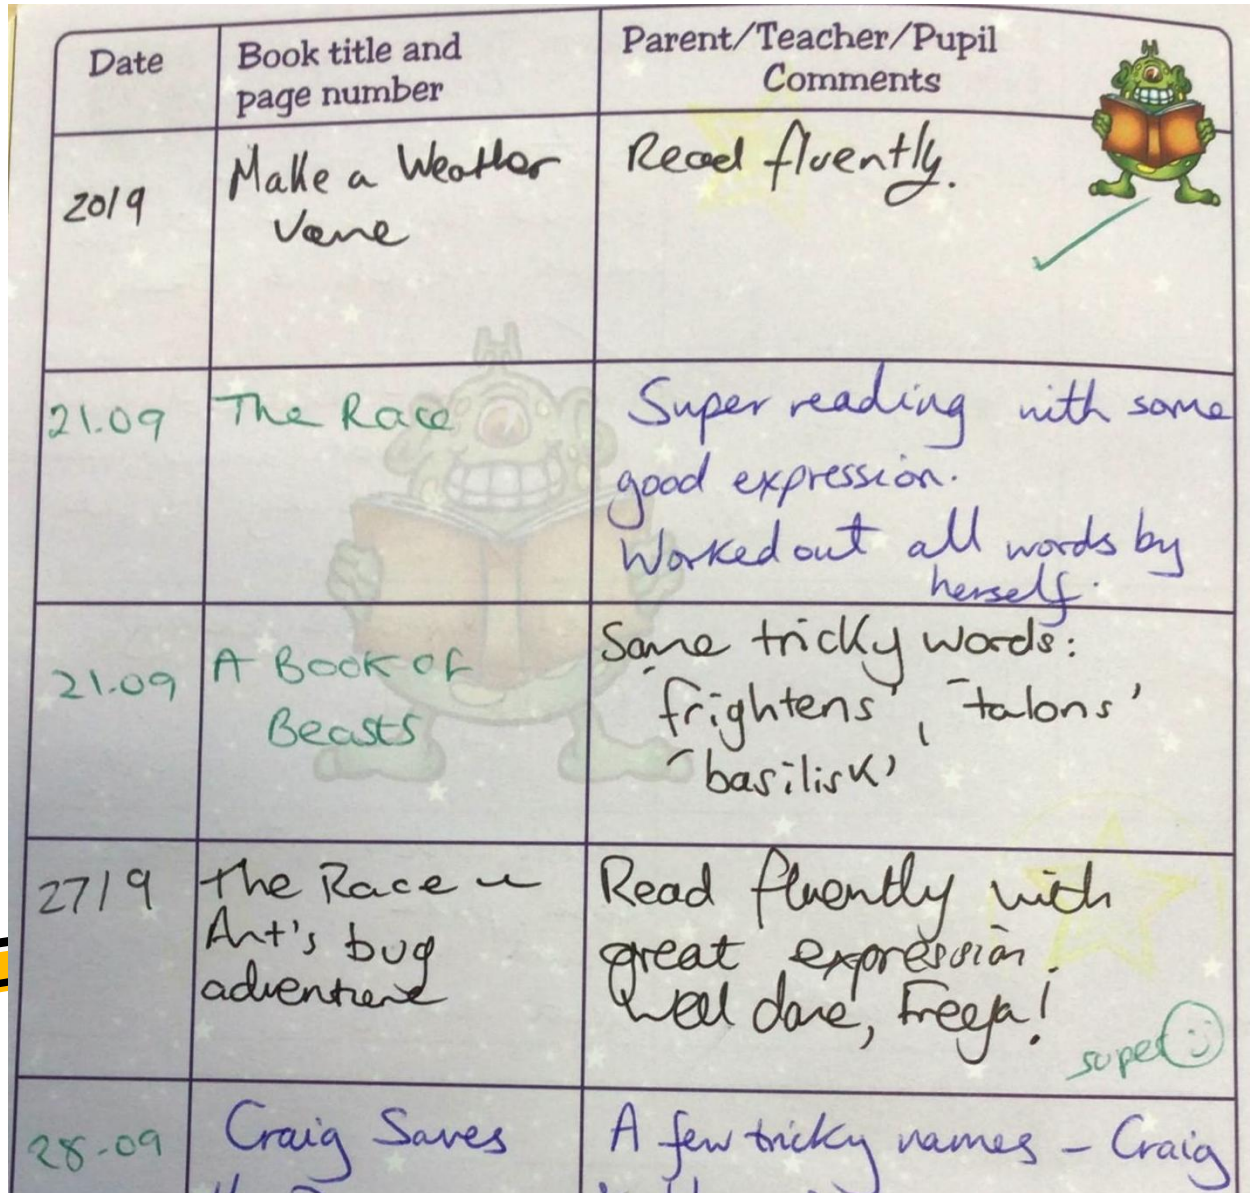 Date
Book title and
page number
Parent/Teacher/Pupil
Comments
20/9
Make a Weather
Vane
Read fluently.
21.09
The Race
Super reading with some
good expression.
Worked out all words by
herself.
21.09
A Book of
Beasts
Some tricky words:
'frightens', 'talons'
'basilisk'
27/9
The Race ~
Ant's bug
adventure
Read fluently with
great expression.
Well done, Freya!
super
28.09
Craig Saves
A few tricky names - Craig